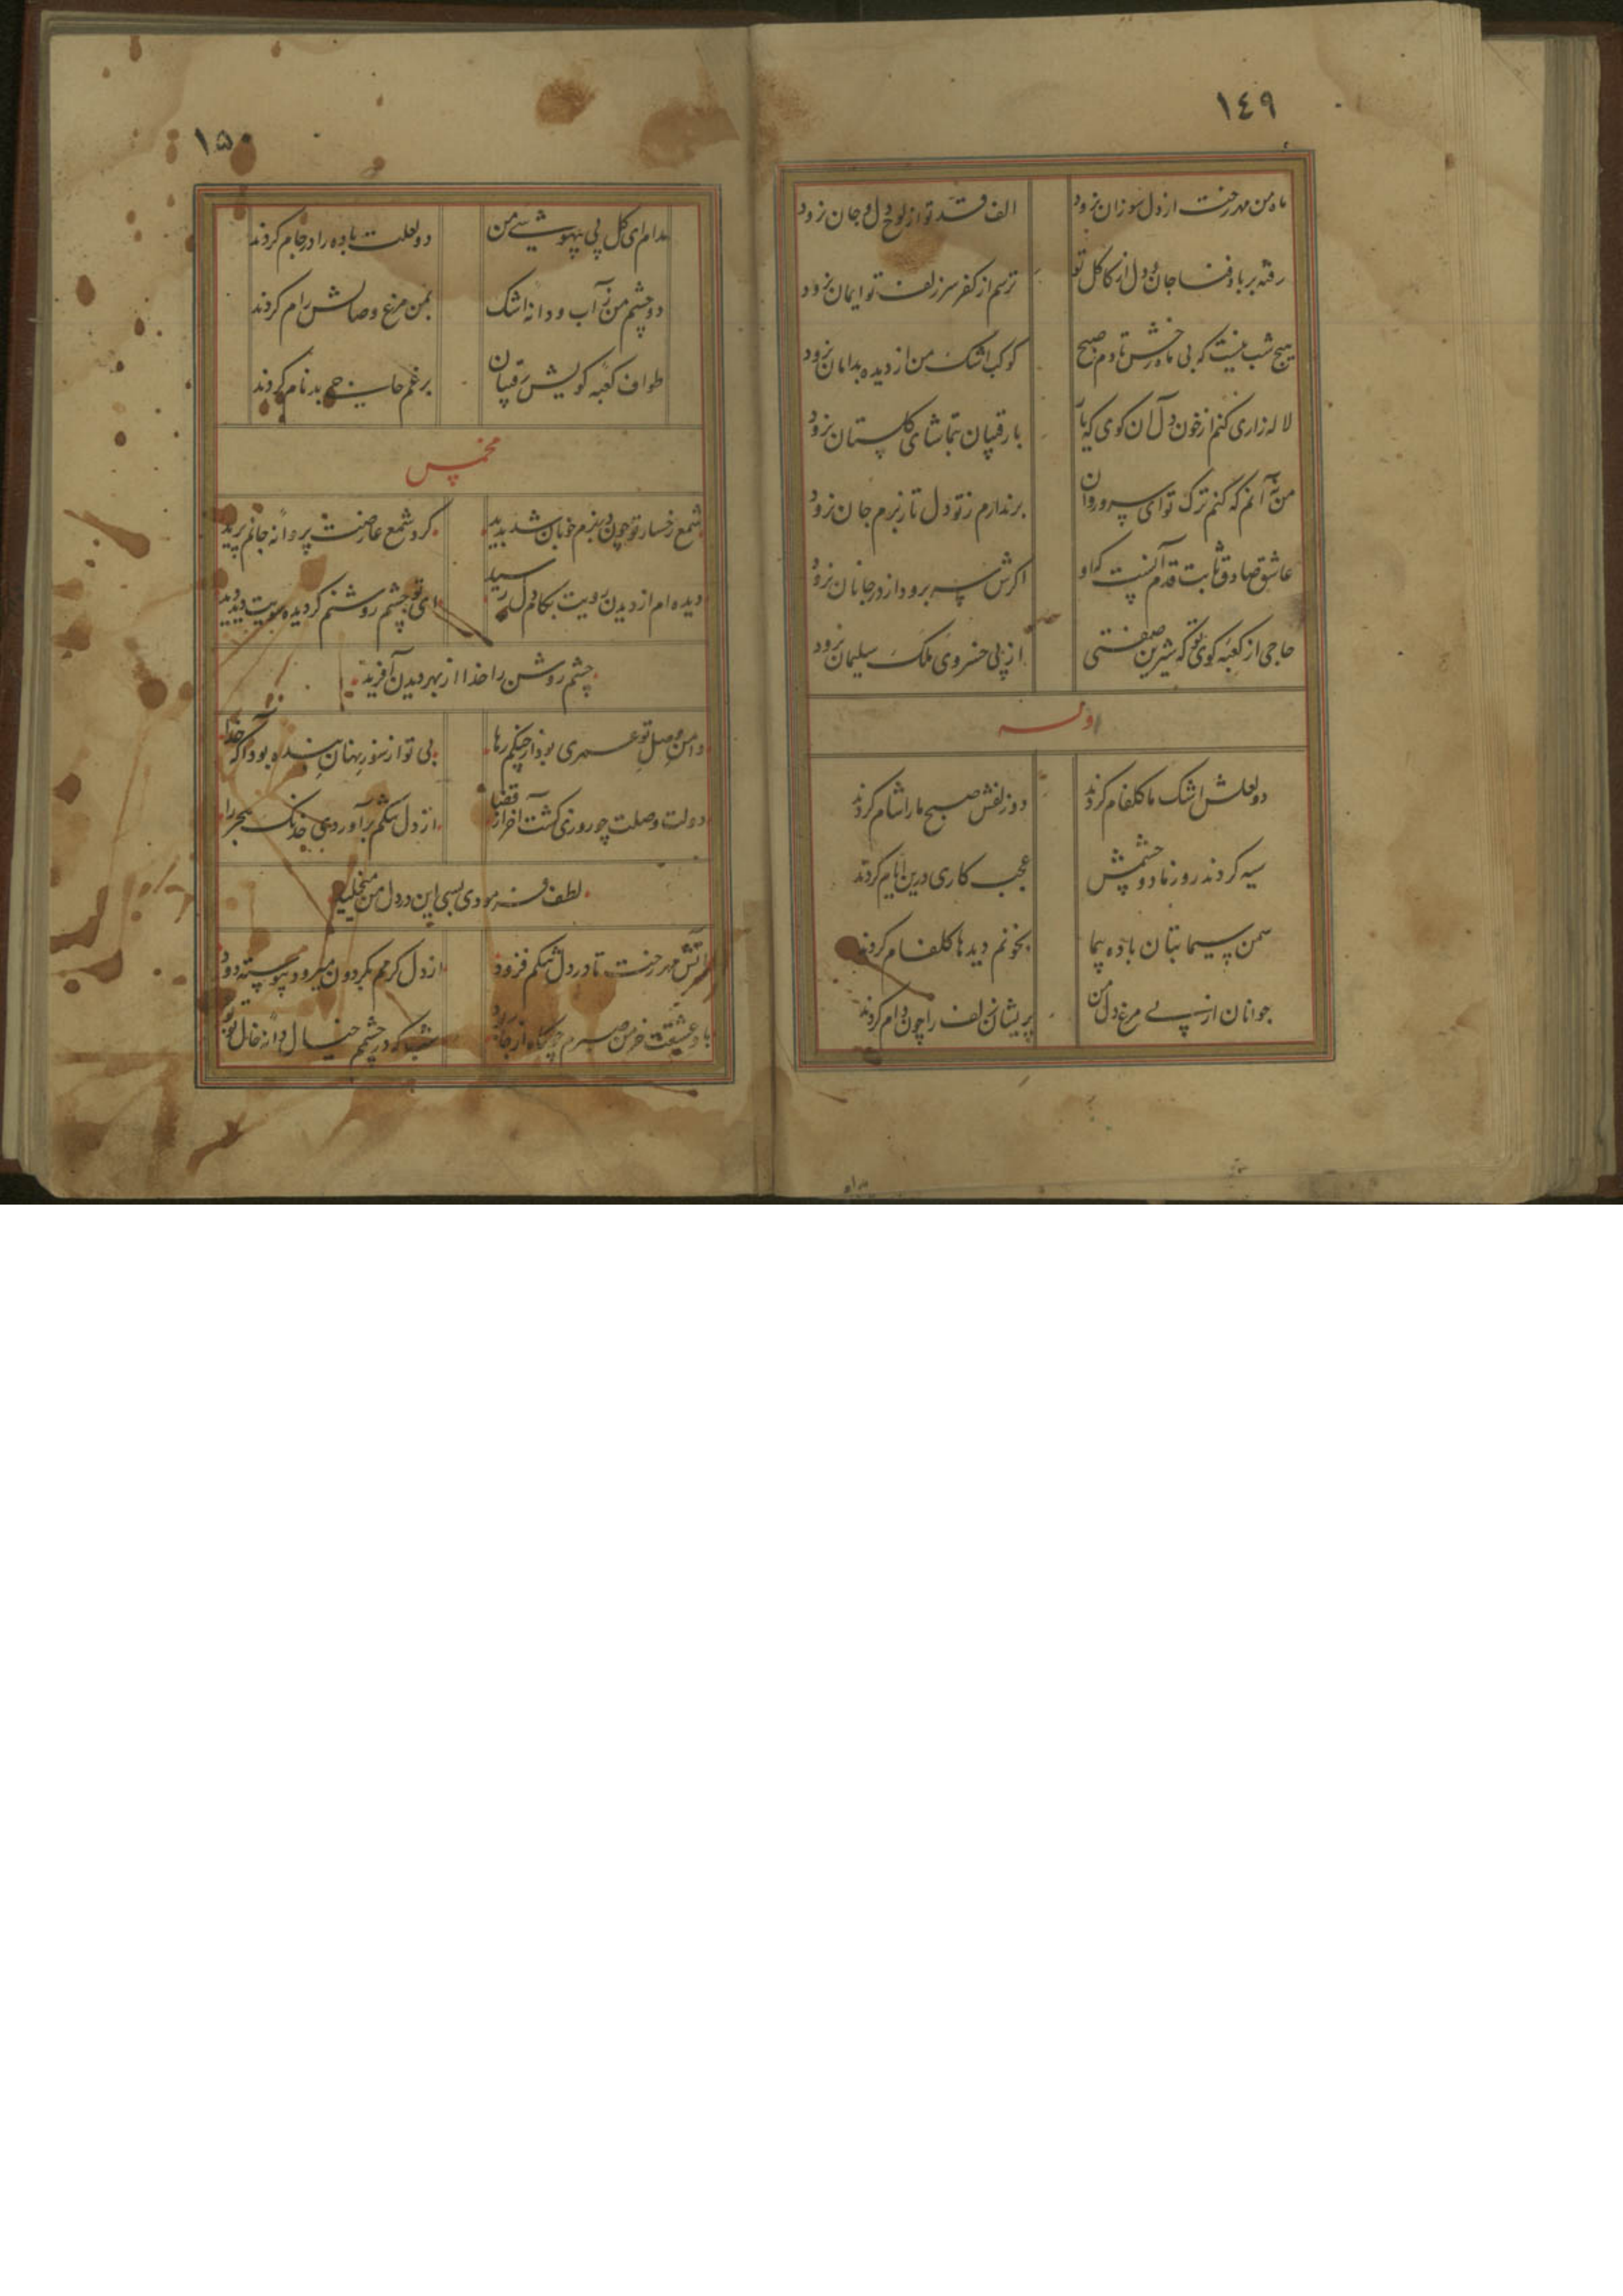 ١٤٩
ماه من مهر رخت از دل سوزان نرود
الف قد تو از لوح دل و جان نرود
رفته بر باد فنا جان و دل از کاکل تو
ترسم از کفر سر زلف تو ایمان نرود
هیچ شب نیست که بی ماه رخش تا دم صبح
کوکب اشک من از دیده بدامان نرود
لاله زاری کنم از خون دل آن کوی که تا
با رقیبان بتماشای کلستان نرود
من نه آنم که کنم ترک تو ای سرو روان
برندارم ز تو دل تا ز برم جان نرود
عاشق صادق ثابت قدم آنست که او
اکرش سر برود از در جانان نرود
حاجی از کعبه کوی تو که شیرین صفتی
از پی خسروی ملک سلیمان نرود
وله
دو لعلش اشک ما کلفام کردند
دو زلفش صبح ما را شام کردند
سیه کردند روز ما دو چشمش
عجب کاری درین ایام کردند
سمن سیما بتان باده پیما
بخونم دیدها کلفام کردند
جوانان از پی مرغ دل من
پریشان زلف را چون دام کردند
١٥٠
مدام ای کل پی بیهوشی من
دو لعلت باده را در جام کردند
دو چشم من ز آب و دانه اشک
بمن مرغ وصالش رام کردند
طواف کعبه کویش رقیبان
برغم حاجی بدنام کردند
مخمس
شمع رخسار تو چون در بزم خوبان شد پدید
کرد شمع عارضت پروانه جانم پرید
دیده ام از دیدن رویت بکام دل رسید
ای تو چشم روشنم کر دیده رویت دید دید
چشم روشن را خدا از بهر دیدن آفرید
دامن وصل تو عمری بود از چنکم رها
بی تو از سوز نهان بنده بود آکه خدا
دولت وصلت چو روزی کشت آخر از قضا
از دل تنکم برآوردی خدنک هجر را
لطف فرمودی بسی این در دل من میخلید
آتش مهر رخت تا در دل تنکم فزود
از دل کرمم بکردون میرود پیوسته دود
باد عشقت خرمن صبرم چو کاه از جا ربود
در چشم خیال دانه خال تو